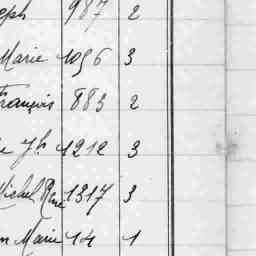 eph 987 2
Marie 1096 3
François 883 2
ie Jh 1212 3
Michel René 1317 3
n Marie 14 1